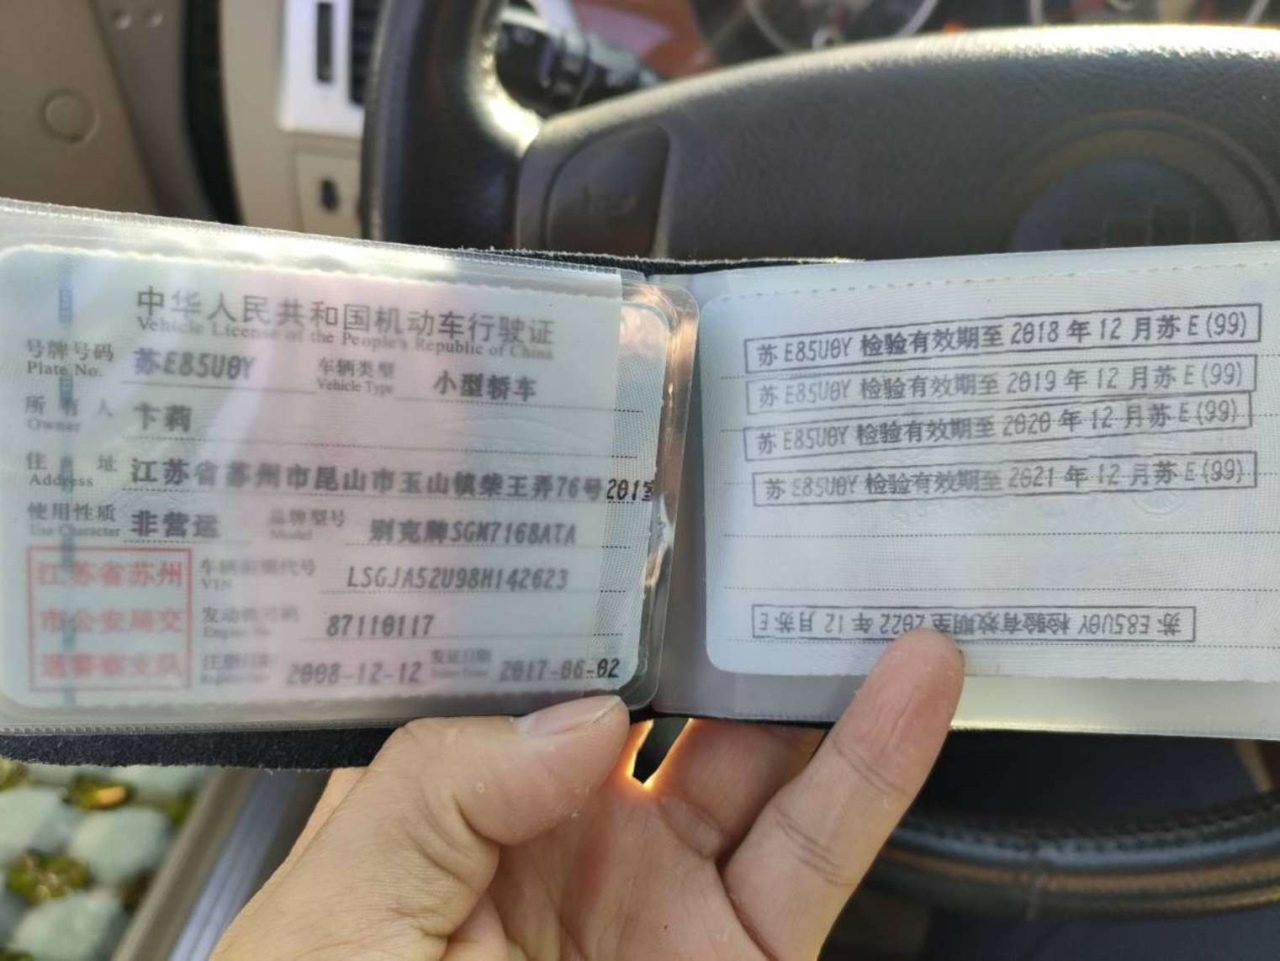 中华人民共和国机动车行驶证
Vehicle License of the People's Republic of China
号牌号码 苏E85U0Y 车辆类型 小型轿车
Plate No. Vehicle Type
所有人 卞莉
Owner
住址 江苏省苏州市昆山市玉山镇柴王弄76号201室
Address
使用性质 非营运 品牌型号 别克牌SGM7168ATA
Use Character Model
车辆识别代号 LSGJA52U98H142623
VIN
发动机号码 87110117
Engine No.
注册日期 2008-12-12 发证日期 2017-06-02
江苏省苏州
市公安局交
通警察支队
苏E85U0Y 检验有效期至 2018年12月苏E(99)
苏E85U0Y 检验有效期至 2019年12月苏E(99)
苏E85U0Y 检验有效期至 2020年12月苏E(99)
苏E85U0Y 检验有效期至 2021年12月苏E(99)
苏E85U0Y 检验有效期至 2022年12月苏E